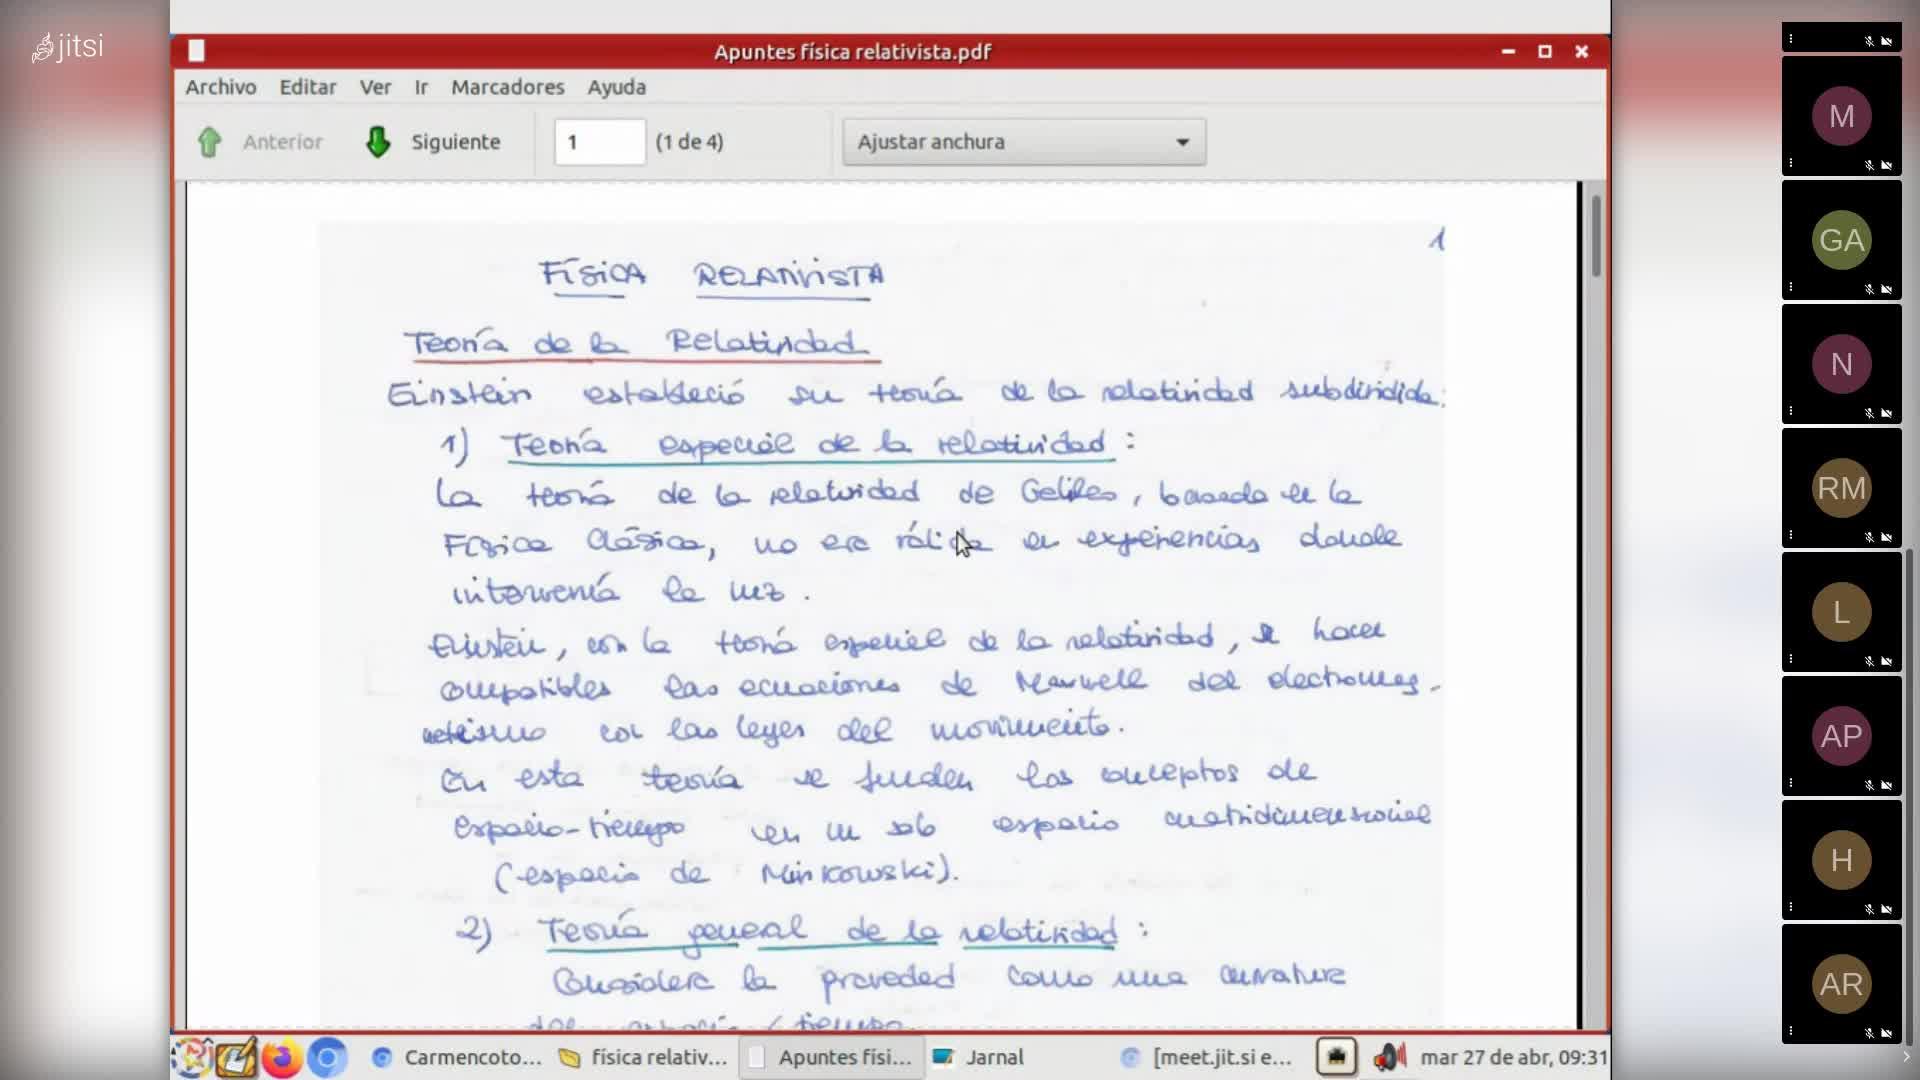 jitsi
Apuntes física relativista.pdf
Archivo Editar Ver Ir Marcadores Ayuda
Anterior Siguiente 1 (1 de 4) Ajustar anchura
1
FÍSICA RELATIVISTA
Teoría de la Relatividad
Einstein estableció su teoría de la relatividad subdividida:
1) Teoría especial de la relatividad:
La teoría de la relatividad de Galileo, basada en la
Física Clásica, no era válida en experiencias donde
intervenía la luz.
Einstein, con la teoría especial de la relatividad, se hacen
compatibles las ecuaciones de Maxwell del electromag-
netismo con las leyes del movimiento.
En esta teoría se funden los conceptos de
espacio-tiempo en un solo espacio cuatridimensional
(espacio de Minkowski).
2) Teoría general de la relatividad:
Considera la gravedad como una curvatura
del espacio/tiempo.
M
GA
N
RM
L
AP
H
AR
Carmencoto... física relativ... Apuntes físi... Jarnal [meet.jit.si e... mar 27 de abr, 09:31